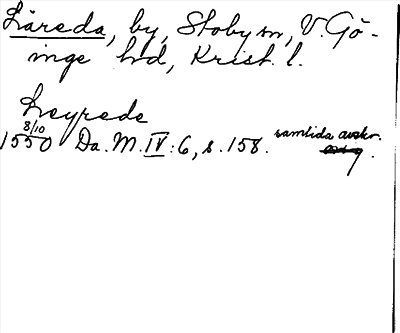 Läreda, by, Stoby sn, V. Gö-
inge hd, Krist. l.
Leyrede
8/10
1550 Da. M. IV: 6, s. 158. samtida avskr.